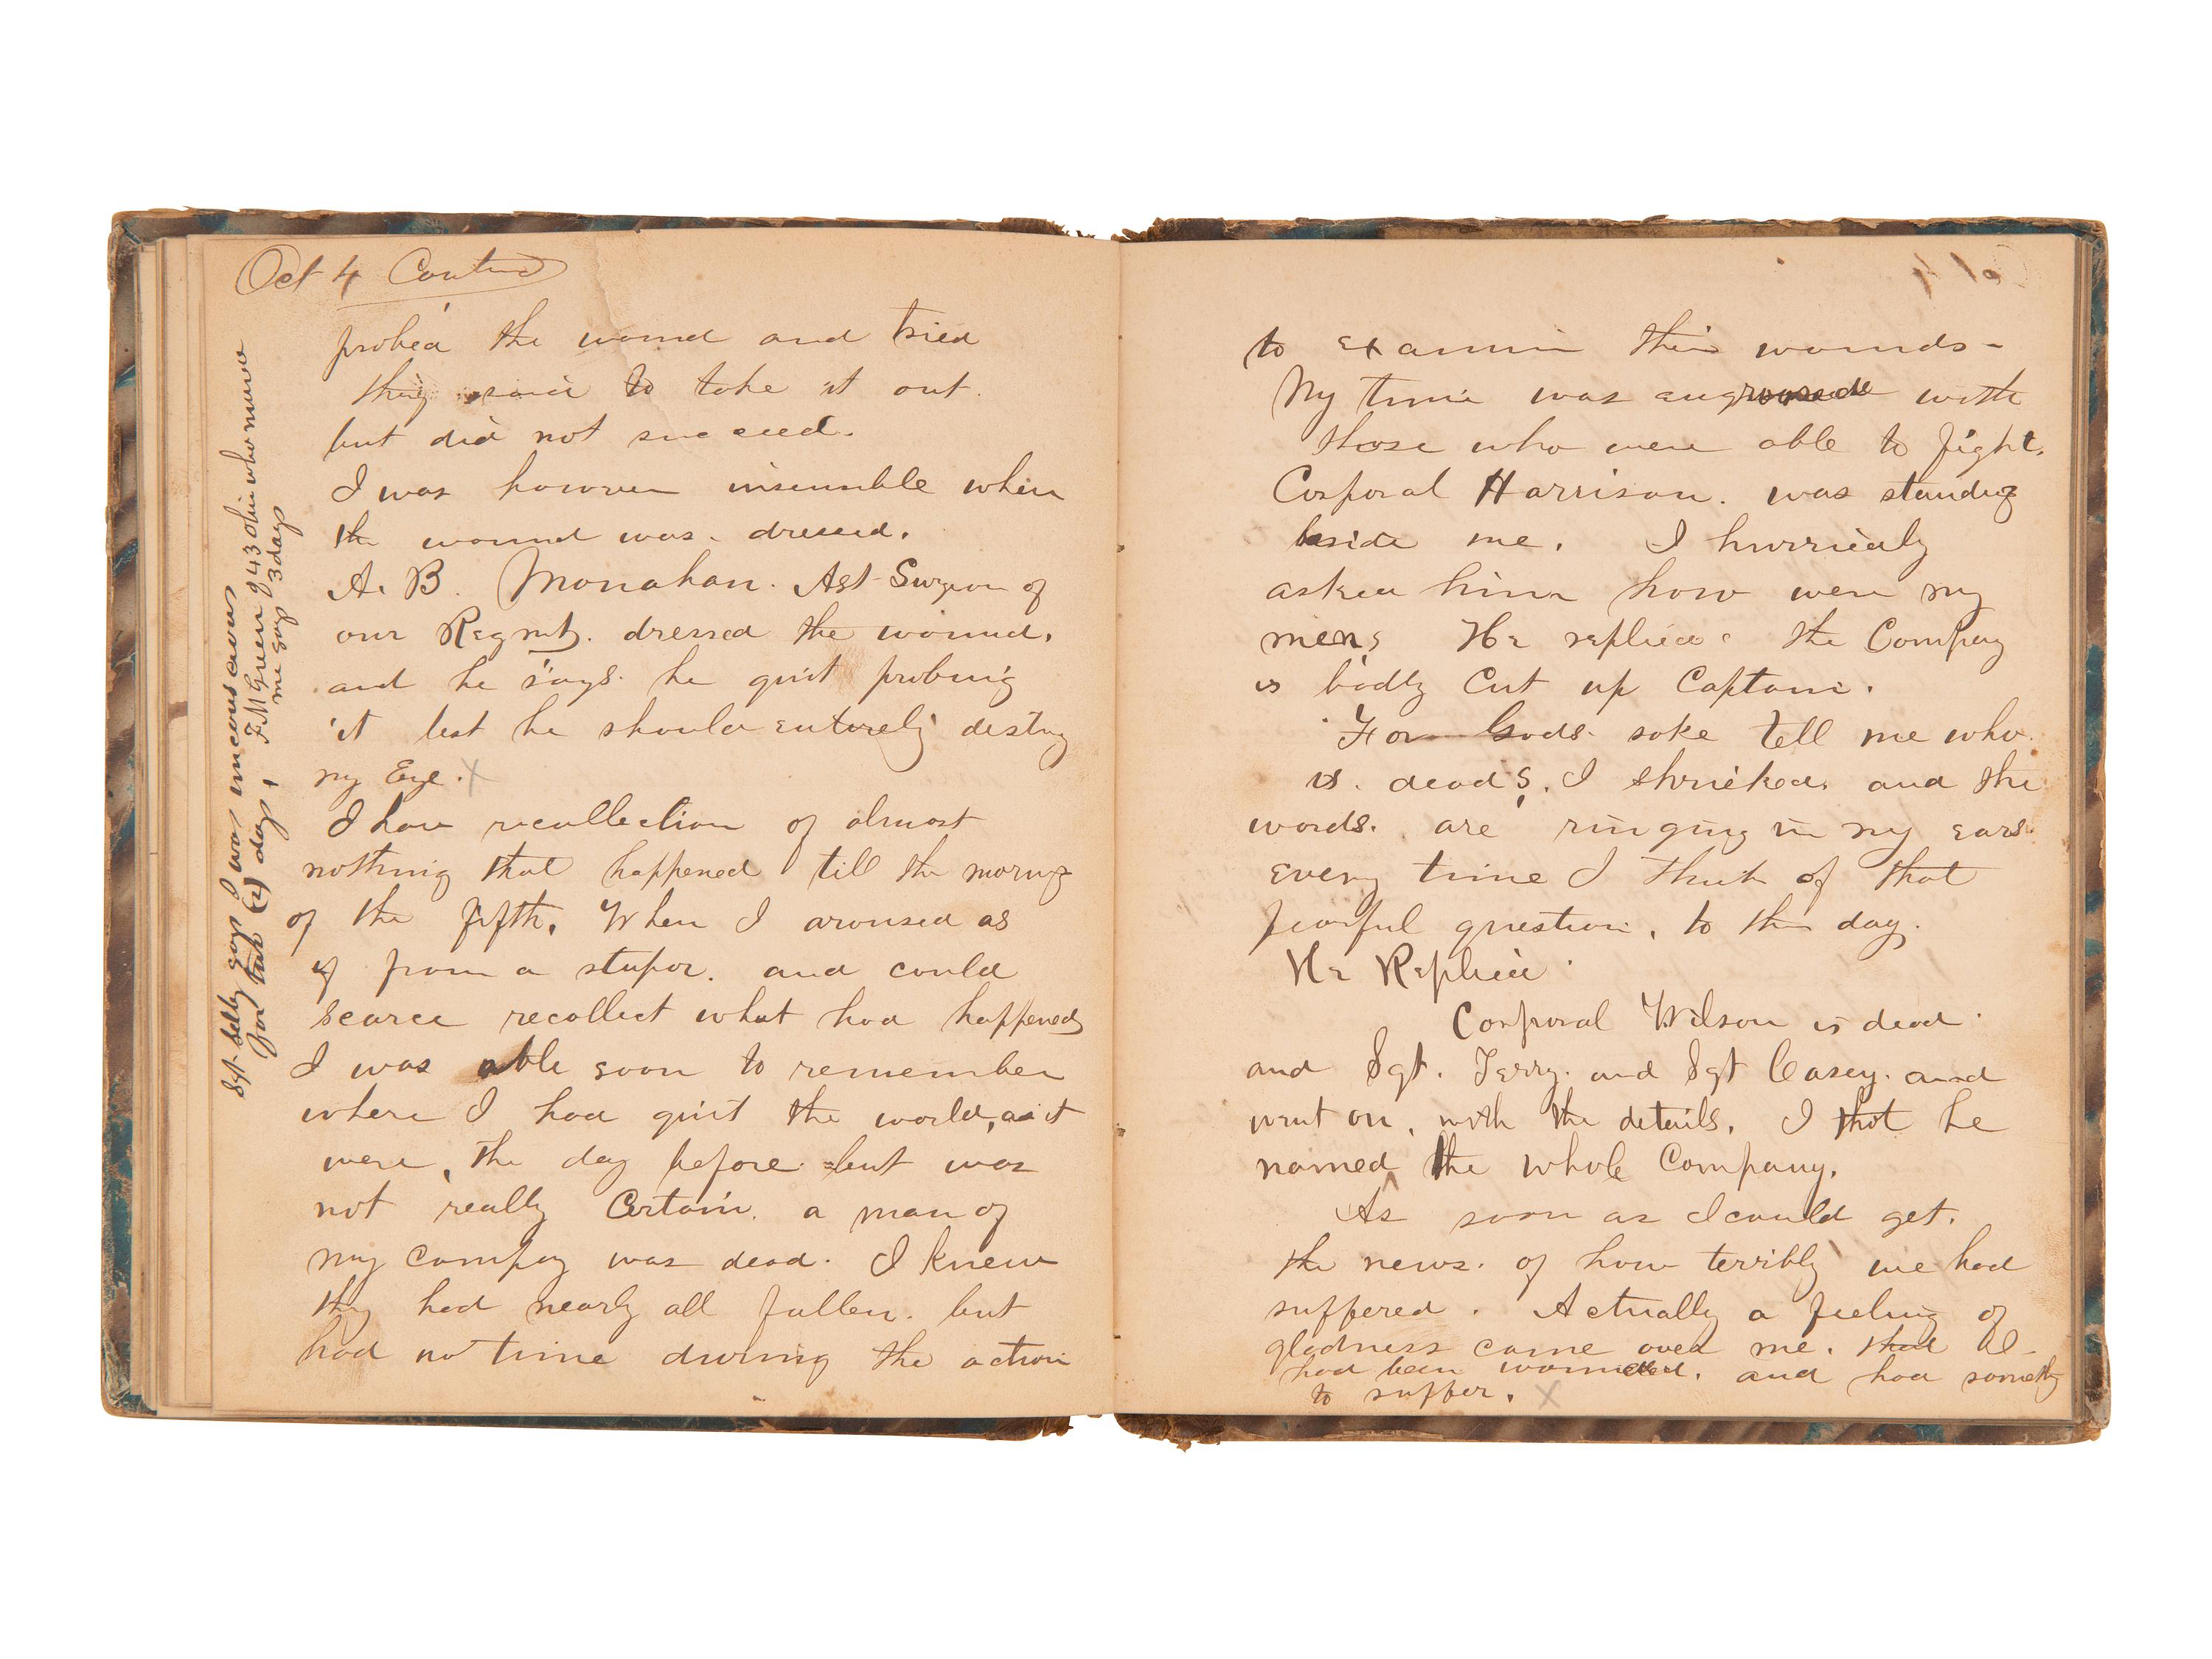 Oct 4 Contud
probed the wound and tried
they said to take it out.
but did not succeed.
I was however insensible when
the wound was. dressed.
A. B. Monahan. Ast Surgeon of
our Regmt. dressed the wound.
and he says. he quit probing
it lest he should entirely destroy
my Eye. x
I have recollection of almost
nothing that happened till the morng
of the fifth. When I aroused as
if from a stupor. and could
scarce recollect what had happened
I was able soon to remember
where I had quit the world, as it
were, the day before but was
not really Certain. a man of
my company was dead. I knew
they had nearly all fallen. but
had no time during the action
Sgt Selby says I was unconscious
for two (2) days,
F. M Green of 43 Ohio who nursed
me says 3 days
Oct 4
to examin their wounds -
My time was engrossed with
those who were able to fight.
Corporal Harrison. was standing
beside me. I hurriedly
asked him how were my
men? He replied: the Company
is badly Cut up Captain.
For Gods sake tell me who
is. dead?. I shrieked. and the
words. are ringing in my ears.
every time I think of that
fearful question, to this day.
He Replied.
Corporal Wilson is dead.
and Sgt. Terry. and Sgt Casey. and
went on, with the details. I thot he
named the whole Company.
As soon as I could get.
the news. of how terribly we had
suffered. Actually a feeling of
gladness came over me. that I
had been wounded. and had somethg
to suffer. x